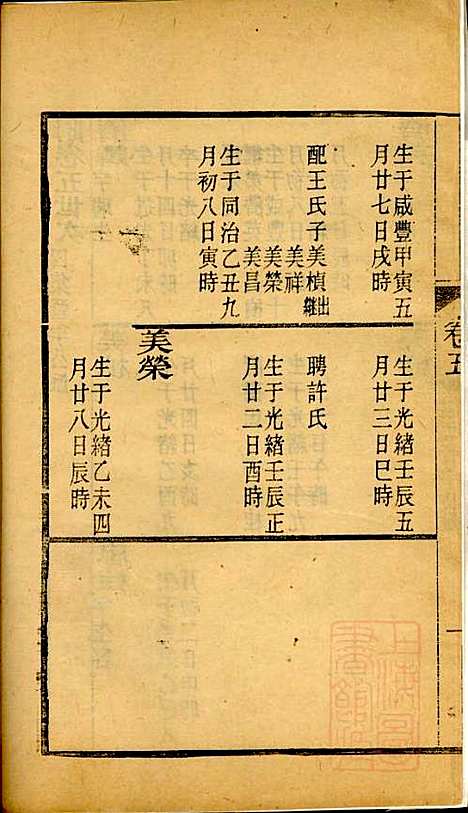 卷五
生于咸豐甲寅五
月廿七日戌時
配王氏子美楨出繼
美祥
美榮
美昌
生于同治乙丑九
月初八日寅時
生于光緒壬辰五
月廿三日巳時
聘許氏
生于光緒壬辰正
月廿二日酉時
美榮
生于光緒乙未四
月廿八日辰時
上海圖書館藏